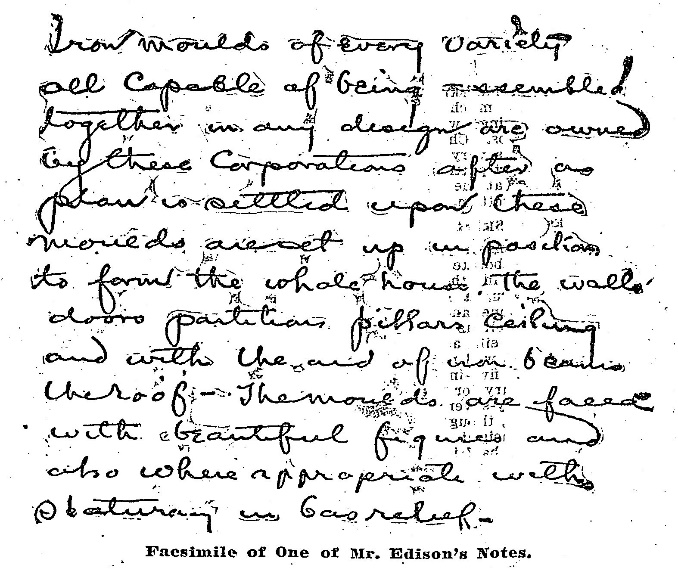 Iron moulds of every variety
all capable of being assembled
together in any design are owned
by these Corporations after as
plan is settled upon these
moulds are set up in position
to form the whole house the walls
doors partitions pillars ceiling
and with the aid of iron beams
the roof - The moulds are faced
with beautiful figures and
also where appropriate with
statuary in bas relief -
Facsimile of One of Mr. Edison's Notes.